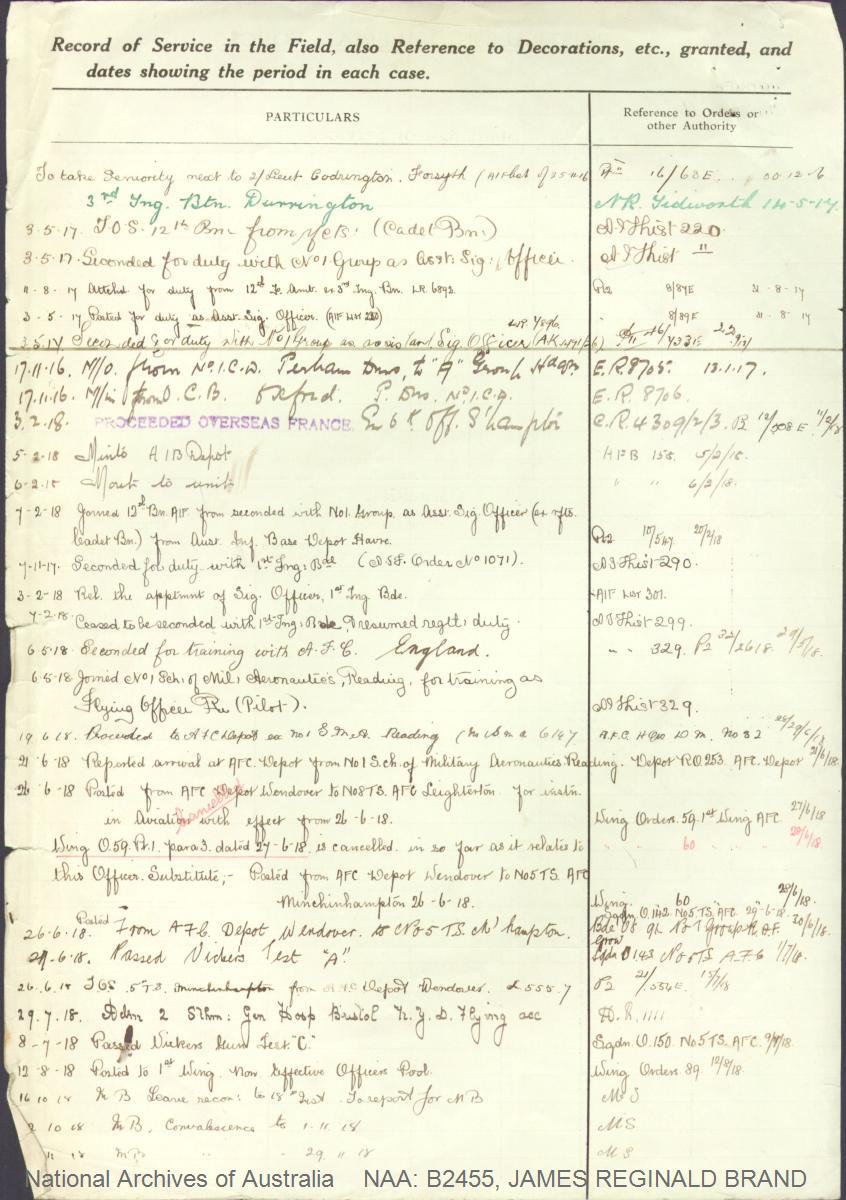 Record of Service in the Field, also Reference to Decorations, etc., granted, and
dates showing the period in each case.
PARTICULARS
Reference to Orders or
other Authority
To take Seniority next to 2/Lieut Codrington, Forsyth
3rd Tng. Btn. Durrington
N.R. Tidworth 14-5-17.
3.5.17. T.O.S. 12th Bn. from rfts: (Cadet Bn:)
List 220
3.5.17. Seconded for duty with No 1 Group as Asst: Sig: Officer.
List "
11-8-17 Attchd for duty from 12th Fd. Amb. ex 3rd Tng. Bn. LR. 6893.
8/87E 31-8-17
3-5-17 Posted for duty as Asst. Sig. Officer. (AIF List 220)
8/89E 31-8-17
3.5.17 Seconded for duty with No 1 Group as assistant Sig. Officer
17.11.16. M/O. from No 1. C.D. Perham Dns, to "A" Group Hdqrs
E.R. 8705. 13.1.17.
17.11.16. M/in from O.C.B. Oxford. P. Dns. No 1. C.D.
E.R. 8706.
3.2.18. PROCEEDED OVERSEAS FRANCE. S'hampton
C.R. 4309/2/3.
5-2-18 M/into A I B Depot
5/2/18.
6-2-18 M/out to unit
" " 6/2/18.
7-2-18 Joined 12th Bn. AIF from seconded with No 1. Group. as Asst. Sig. Officer (ex rfts.
Cadet Bn.) from Aust. Inf. Base Depot Havre.
10/547 20/2/18
7-11-17. Seconded for duty with 1st Tng: Bde (A.I.F. Order No 1071).
List 290.
3-2-18 Rel. the apptmnt of Sig. Officer, 1st Tng Bde.
AIF List 307.
7-2-18. Ceased to be seconded with 1st Tng: Bde, & resumed regtl: duty.
List 299.
6.5.18. Seconded for training with A.F.C. England.
" " 329.
6-5-18 Joined No 1 Sch: of Mil: Aeronautics, Reading, for training as
Flying Officer (Pilot).
List 329.
19 6 18. Proceeded to A.F.C Depot ex No 1 S.M.A. Reading
21-6-18 Reported arrival at AFC. Depot from No 1 Sch. of Military Aeronautics Reading.
Depot R.O. 253. AFC. Depot 21/6/18.
26-6-18 Posted from AFC Depot Wendover to No 8 T.S. AFC Leighterton. for instn.
Cancelled
in Aviation with effect from 26-6-18.
Wing Orders. 59. 1st Wing AFC 27/6/18
Wing O.59. Pt.1. para 3. dated 27-6-18. is cancelled. in so far as it relates to
" " 60 " " 28/6/18.
this Officer. Substitute;- Posted from AFC Depot Wendover to No 5 T.S. AFC
Minchinhampton 26-6-18.
Wing. 60 28/6/18.
Sqdn. O.142. No 5 T.S. AFC. 29-6-18.
26-6-18. Posted From A.F.C. Depot Wendover to No 5 T.S. M'hampton.
30/6/18.
29.6.18. Passed Vickers Test "A".
Sqdn O 143 No 5 TS A.F.C 1/7/18.
26.6.18 TOS. 5 T.S. Minchinhampton from A.F.C Depot Wendover.
29.7.18. Adm 2 Sthn: Gen Hosp Bristol N.Y.D. Flying acc
H.R. 1111
8-7-18 Passed Vickers Gun Test "C."
Sqdn. O.150. No 5 T.S. AFC. 9/7/18.
12-8-18 Posted to 1st Wing. Non. Effective Officers Pool.
Wing Orders. 89. 12/8/18.
16 10 18 M B Leave recom: to 18" Inst. To report for MB
M S
2 10 18 M B, Convalescence to 1-11-18
M S
11 18 MB " " 29. 11 18
M S
National Archives of Australia NAA: B2455, JAMES REGINALD BRAND